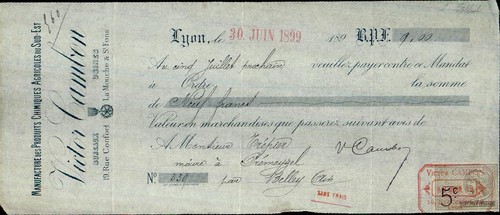 MANUFACTURE DES PRODUITS CHIMIQUES AGRICOLES DU SUD-EST
Victor Cambon
USINES
La Mouche & St Fons
BUREAUX
19, Rue Confort
Lyon, le 30 JUIN 1899 189 B.P.F. 9,00
Au cinq Juillet prochain veuillez payer contre ce Mandat
à Ordre la somme
de Neuf francs
Valeur en marchandises que passerez suivant avis de
A Monsieur Trépier V. Cambon
maire à
No 330 par Belley Ain
SANS FRAIS
VICTOR CAMBON
5c